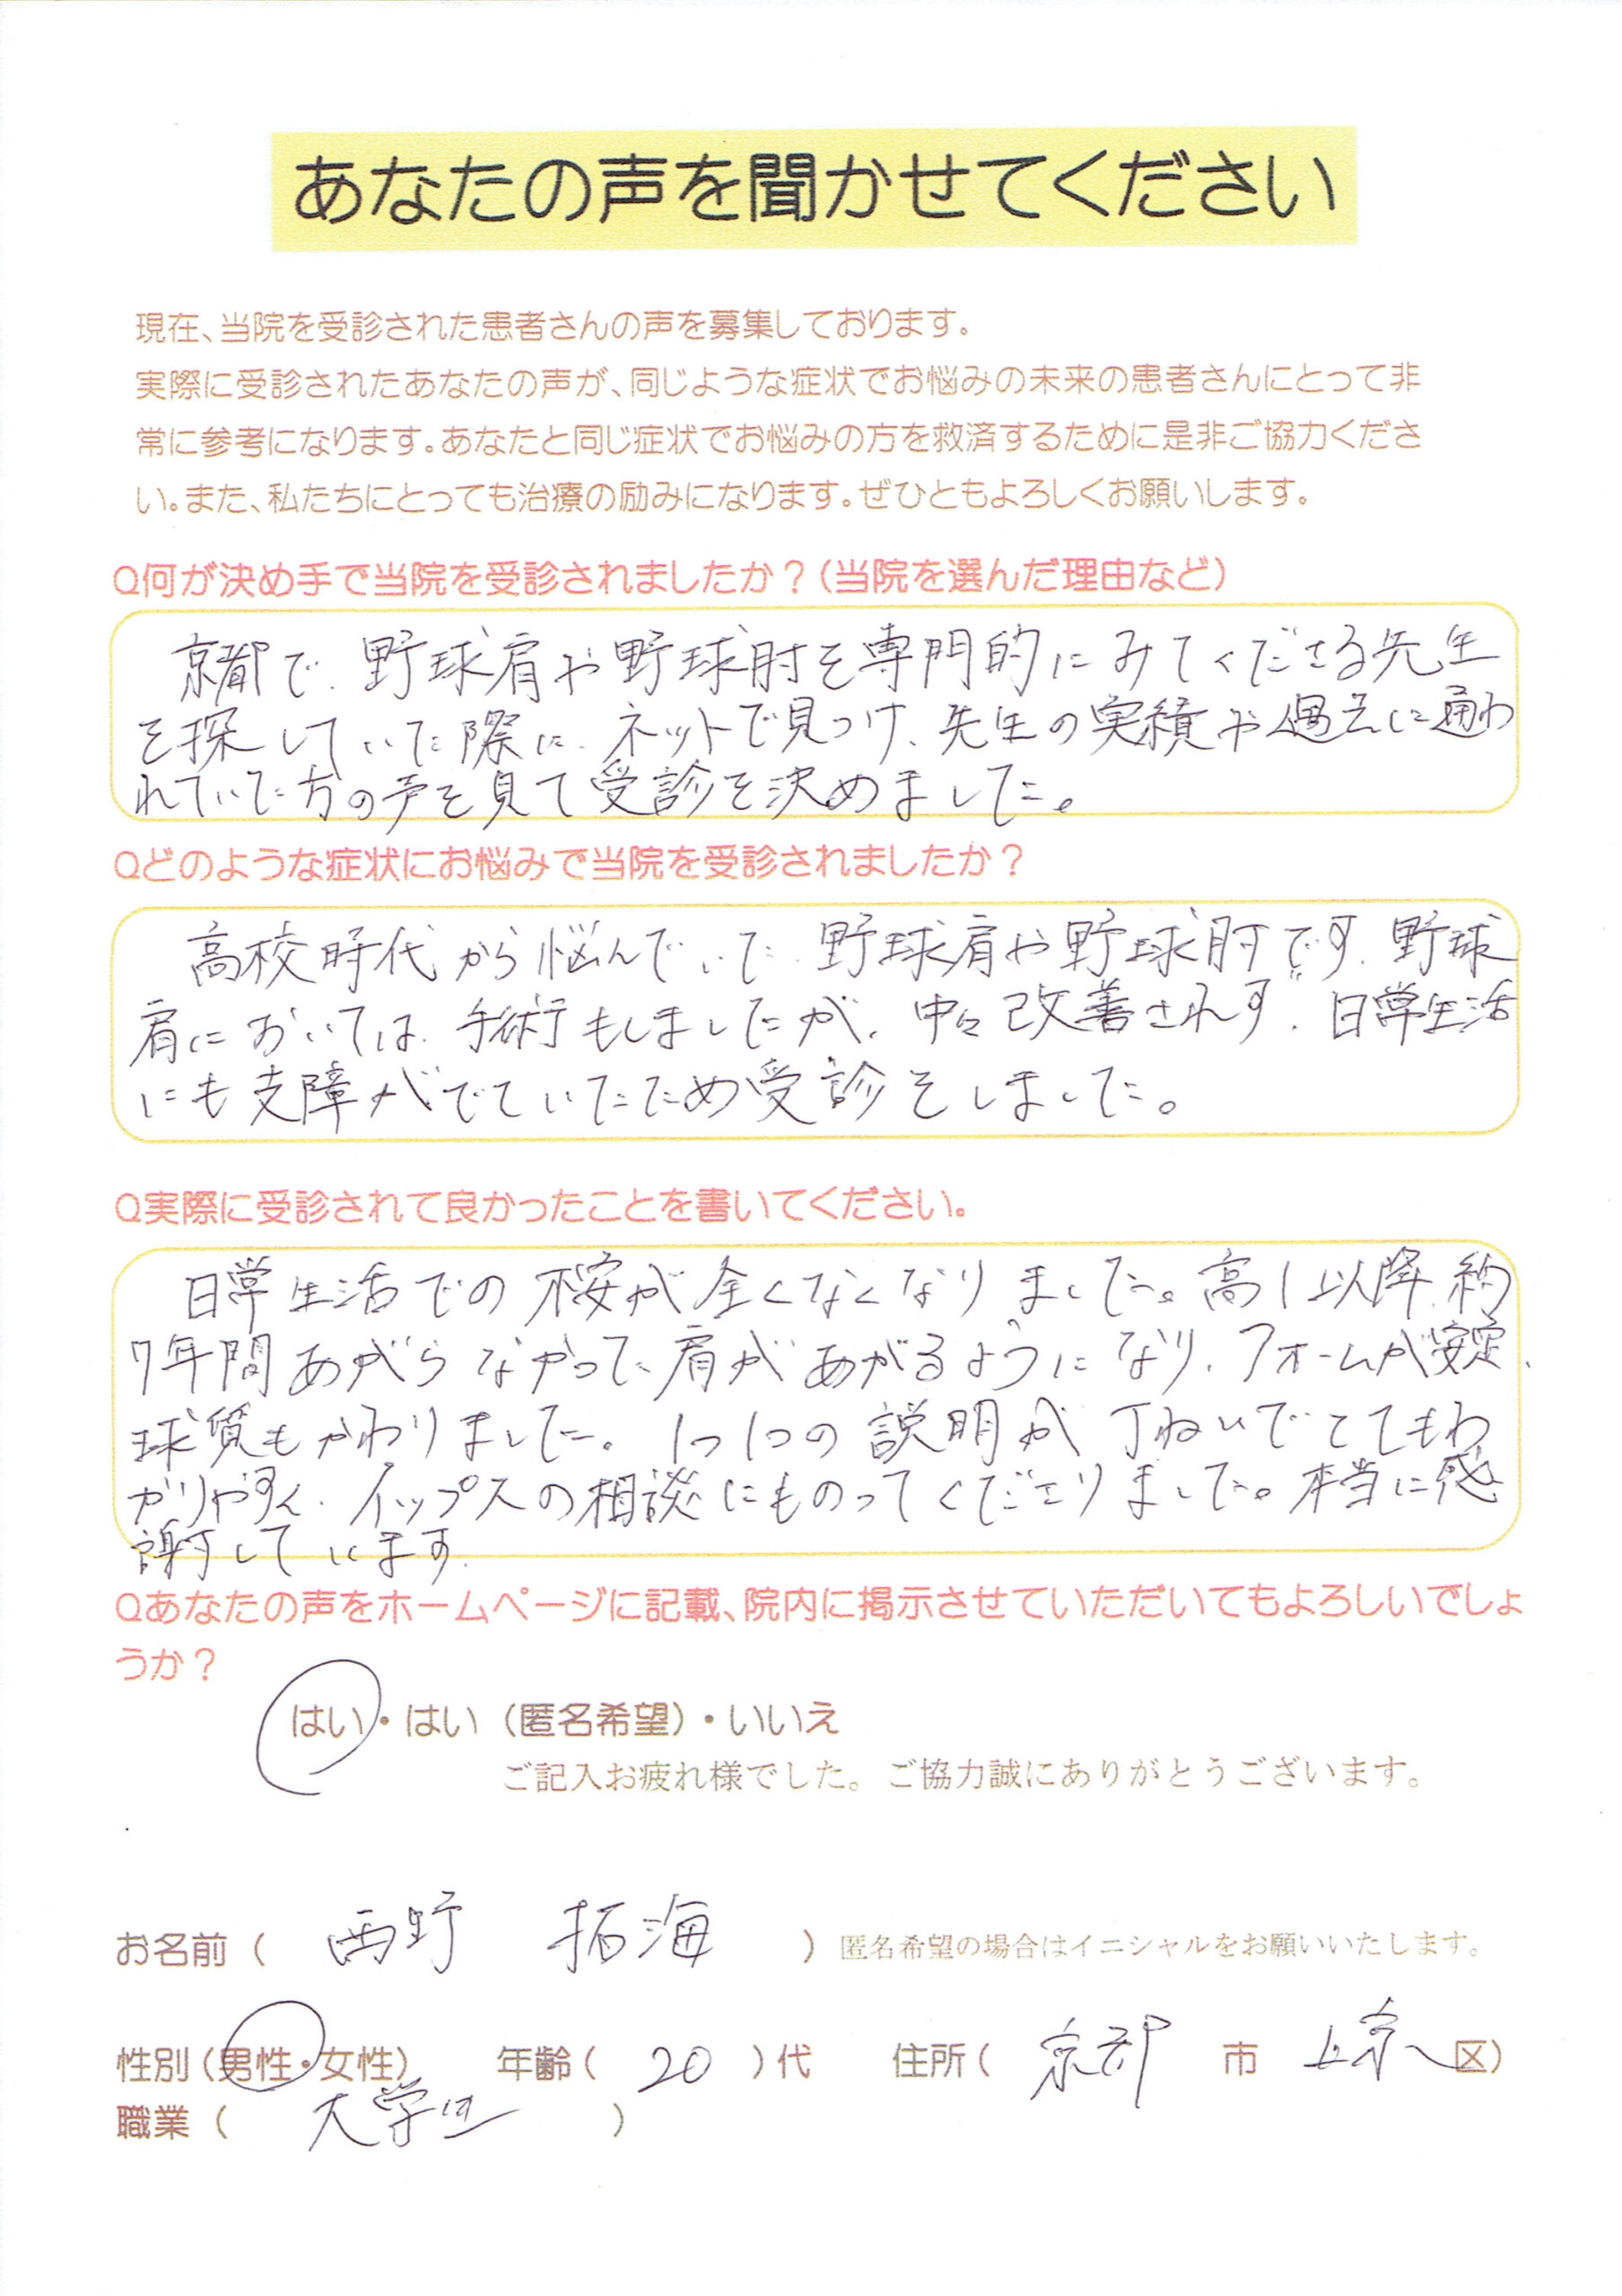 あなたの声を聞かせてください
現在、当院を受診された患者さんの声を募集しております。
実際に受診されたあなたの声が、同じような症状でお悩みの未来の患者さんにとって非
常に参考になります。あなたと同じ症状でお悩みの方を救済するために是非ご協力くださ
い。また、私たちにとっても治療の励みになります。ぜひともよろしくお願いします。
Q何が決め手で当院を受診されましたか？（当院を選んだ理由など）
京都で、野球肩や野球肘を専門的にみてくださる先生
を探していた際に、ネットで見つけ、先生の実績や過去に通わ
れていた方の声を見て受診を決めました。
Qどのような症状にお悩みで当院を受診されましたか？
高校時代から悩んでいた、野球肩や野球肘です。野球
肩においては、手術もしましたが、中々改善されず、日常生活
にも支障がでていたため受診をしました。
Q実際に受診されて良かったことを書いてください。
日常生活での痛みが全くなくなりました。高1以降、約
7年間あがらなかった肩があがるようになり、フォームが安定、
球質もかわりました。1つ1つの説明が丁ねいでとてもわ
かりやすく、イップスの相談にものってくださりました。本当に感
謝しています。
Qあなたの声をホームページに記載、院内に掲示させていただいてもよろしいでしょ
うか？
はい・はい（匿名希望）・いいえ
ご記入お疲れ様でした。ご協力誠にありがとうございます。
お名前（ 西野 拓海 ）匿名希望の場合はイニシャルをお願いいたします。
性別（男性・女性） 年齢（ 20 ）代 住所（ 京都 市 上京 区）
職業（ 大学生 ）